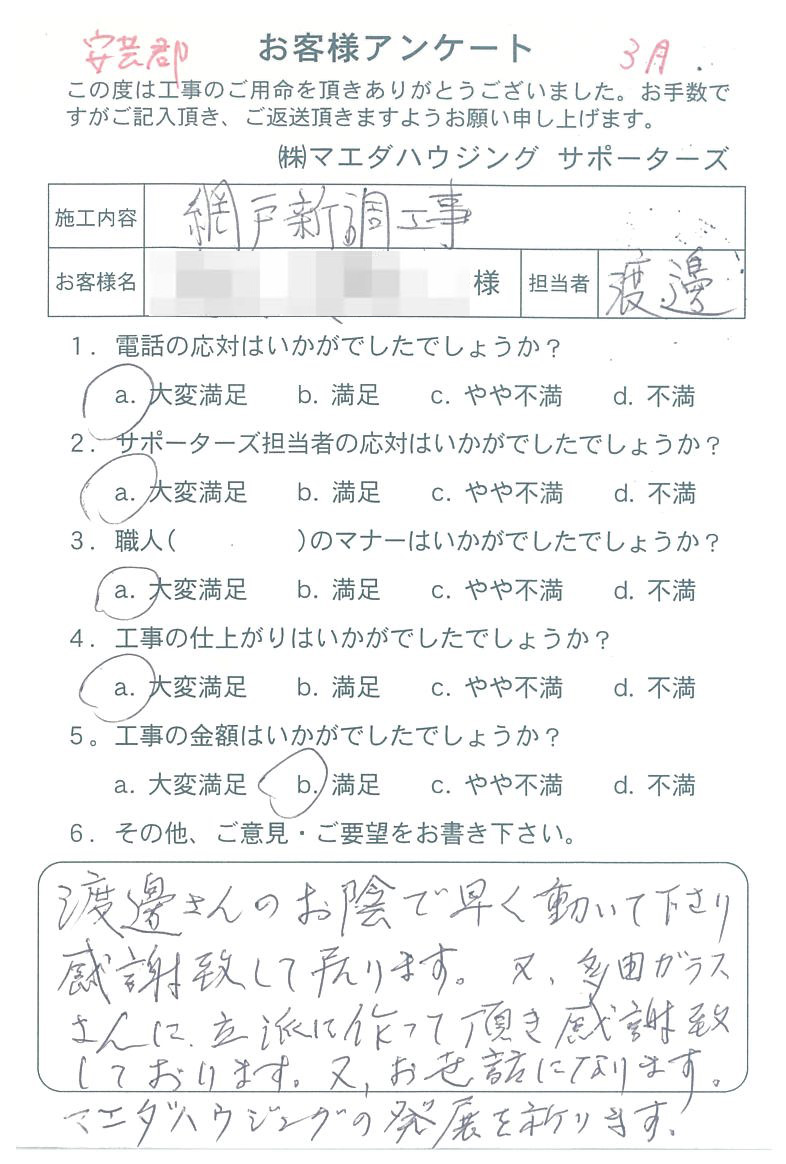 安芸郡 お客様アンケート 3月
この度は工事のご用命を頂きありがとうございました。お手数で
すがご記入頂き、ご返送頂きますようお願い申し上げます。
㈱マエダハウジング サポーターズ
施工内容 網戸新調工事
お客様名 様 担当者 渡邊
1. 電話の応対はいかがでしたでしょうか？
a. 大変満足 b. 満足 c. やや不満 d. 不満
2. サポーターズ担当者の応対はいかがでしたでしょうか？
a. 大変満足 b. 満足 c. やや不満 d. 不満
3. 職人( )のマナーはいかがでしたでしょうか？
a. 大変満足 b. 満足 c. やや不満 d. 不満
4. 工事の仕上がりはいかがでしたでしょうか？
a. 大変満足 b. 満足 c. やや不満 d. 不満
5。工事の金額はいかがでしたでしょうか？
a. 大変満足 b. 満足 c. やや不満 d. 不満
6. その他、ご意見・ご要望をお書き下さい。
渡邊さんのお陰で早く動いて下さり
感謝致して居ります。又、多田ガラス
さんに、立派に作って頂き感謝致
しております。又、お世話になります。
マエダハウジングの発展を祈ります。